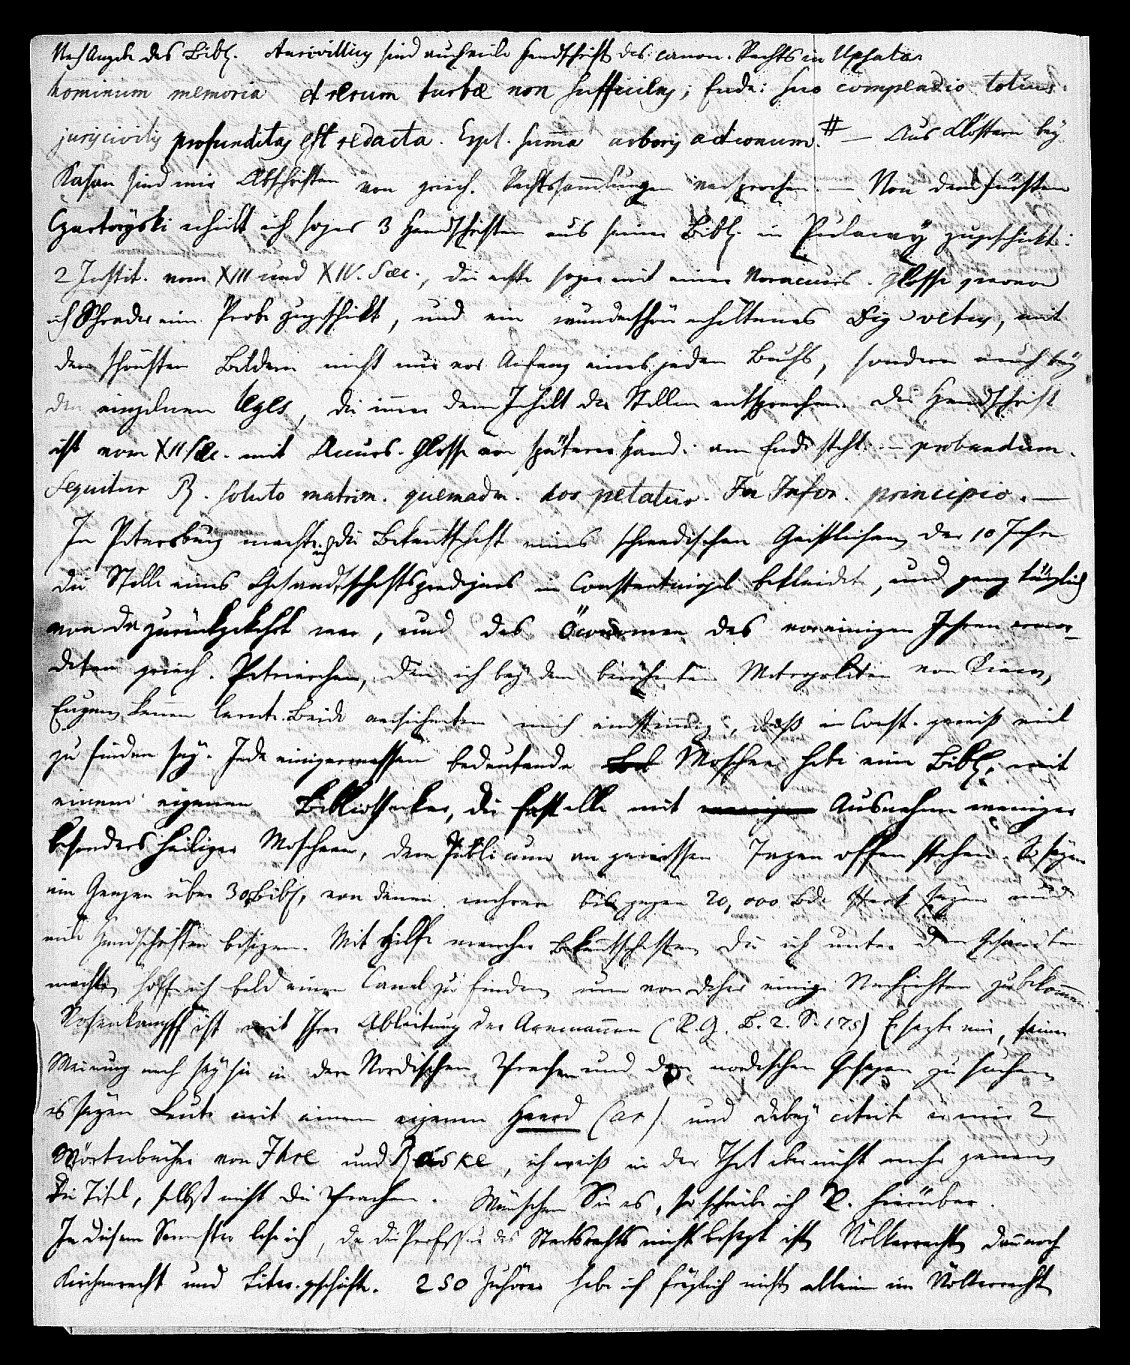 Nach Angabe des Bibl. Aurivillius sind auch viele Handschrift. des canon. Rechts in Upsala.
hominum memoria et rerum turbae non sufficiens; Ende: suo compendio totius
juris civilis profunditas est redacta. Expl. summa arboris actionum.# — Aus Klöstern bey
Kasan sind mir Abschriften von griech. Rechtssammlungen versprochen. — Von dem Fürsten
Czartoryski erhielt ich sogar 3 Handschriften aus seiner Bibl. in Pulawy zugeschickt:
2 Instit. vom XIII und XIV. Saec., die erste sogar mit einer Voraccurs. Glosse wovon
ich Schrader eine Probe zugeschickt, und ein wunderschön erhaltenes Dig. vetus, mit
den schönsten Bildern nicht nur vor Anfang eines jeden Buchs, sondern auch bey
den einzelnen Leges, die immer dem Inhalt der Stellen entsprechen. Die Handschrift
ist vom XII Saec. mit Accurs. Glosse von späterer Hand. am Ende steht: — probandum.
Sequitur R. soluto matrim. quemadm. dos petatur. In Infor. principio. —
In Petersburg machte ich die Bekanntschaft eines schwedischen Geistlichen, der 10 Jahre
die Stelle eines Gesandtschaftspredigers in Constantinopel bekleidete, und ganz kürzlich
von da zurückgekehrt war, und des Öconomen des vor einigen Jahren ermor-
deten griech. Patriarchen, den ich bey dem berühmten Metropoliten von Kiew,
Eugen, kennen lernte. Beide versicherten mich einstimmig, daß in Const. gewiß viel
zu finden sey. Jede einigermassen bedeutende Moschee habe eine Bibl. mit
einem eigenen Bibliothekar, die fast alle mit Ausnahme weniger
besonders heiliger Moscheen, dem Publicum an gewissen Tagen offen stehen. Es seyen
im Ganzen über 30 Bibl., von denen mehrere bis gegen 20,000 Bde stark seyen und
viele Handschriften besitzen. Mit Hilfe mancher Bekanntschaften, die ich unter den Gesandten
machte, hoffe ich bald einen Canal zu finden, um von daher einige Nachrichten zu bekommen.
Rosenkampff ist mit Ihrer Ableitung der Arimannen (R.G. B. 2. S. 175) Er sagte mir, seiner
Meinung nach sey sie in den Nordischen Sprachen und den nordischen Gesetzen zu suchen,
es seyen Leute mit einem eigenen Heerd (ar) und dabey citirte er mir 2
Wörterbücher von Ihre und Raske, ich weiß in der That aber nicht mehr genau
die Titel, selbst nicht die Sprachen. Wünschen Sie es, so schreibe ich R. hierüber.
In diesem Semester lese ich, da die Professur des Staatsrechts nicht besetzt ist, Völkerrecht, dann noch
Kirchenrecht und Liter.geschichte. 250 Zuhörer habe ich freylich nicht, allein im Völkerrecht